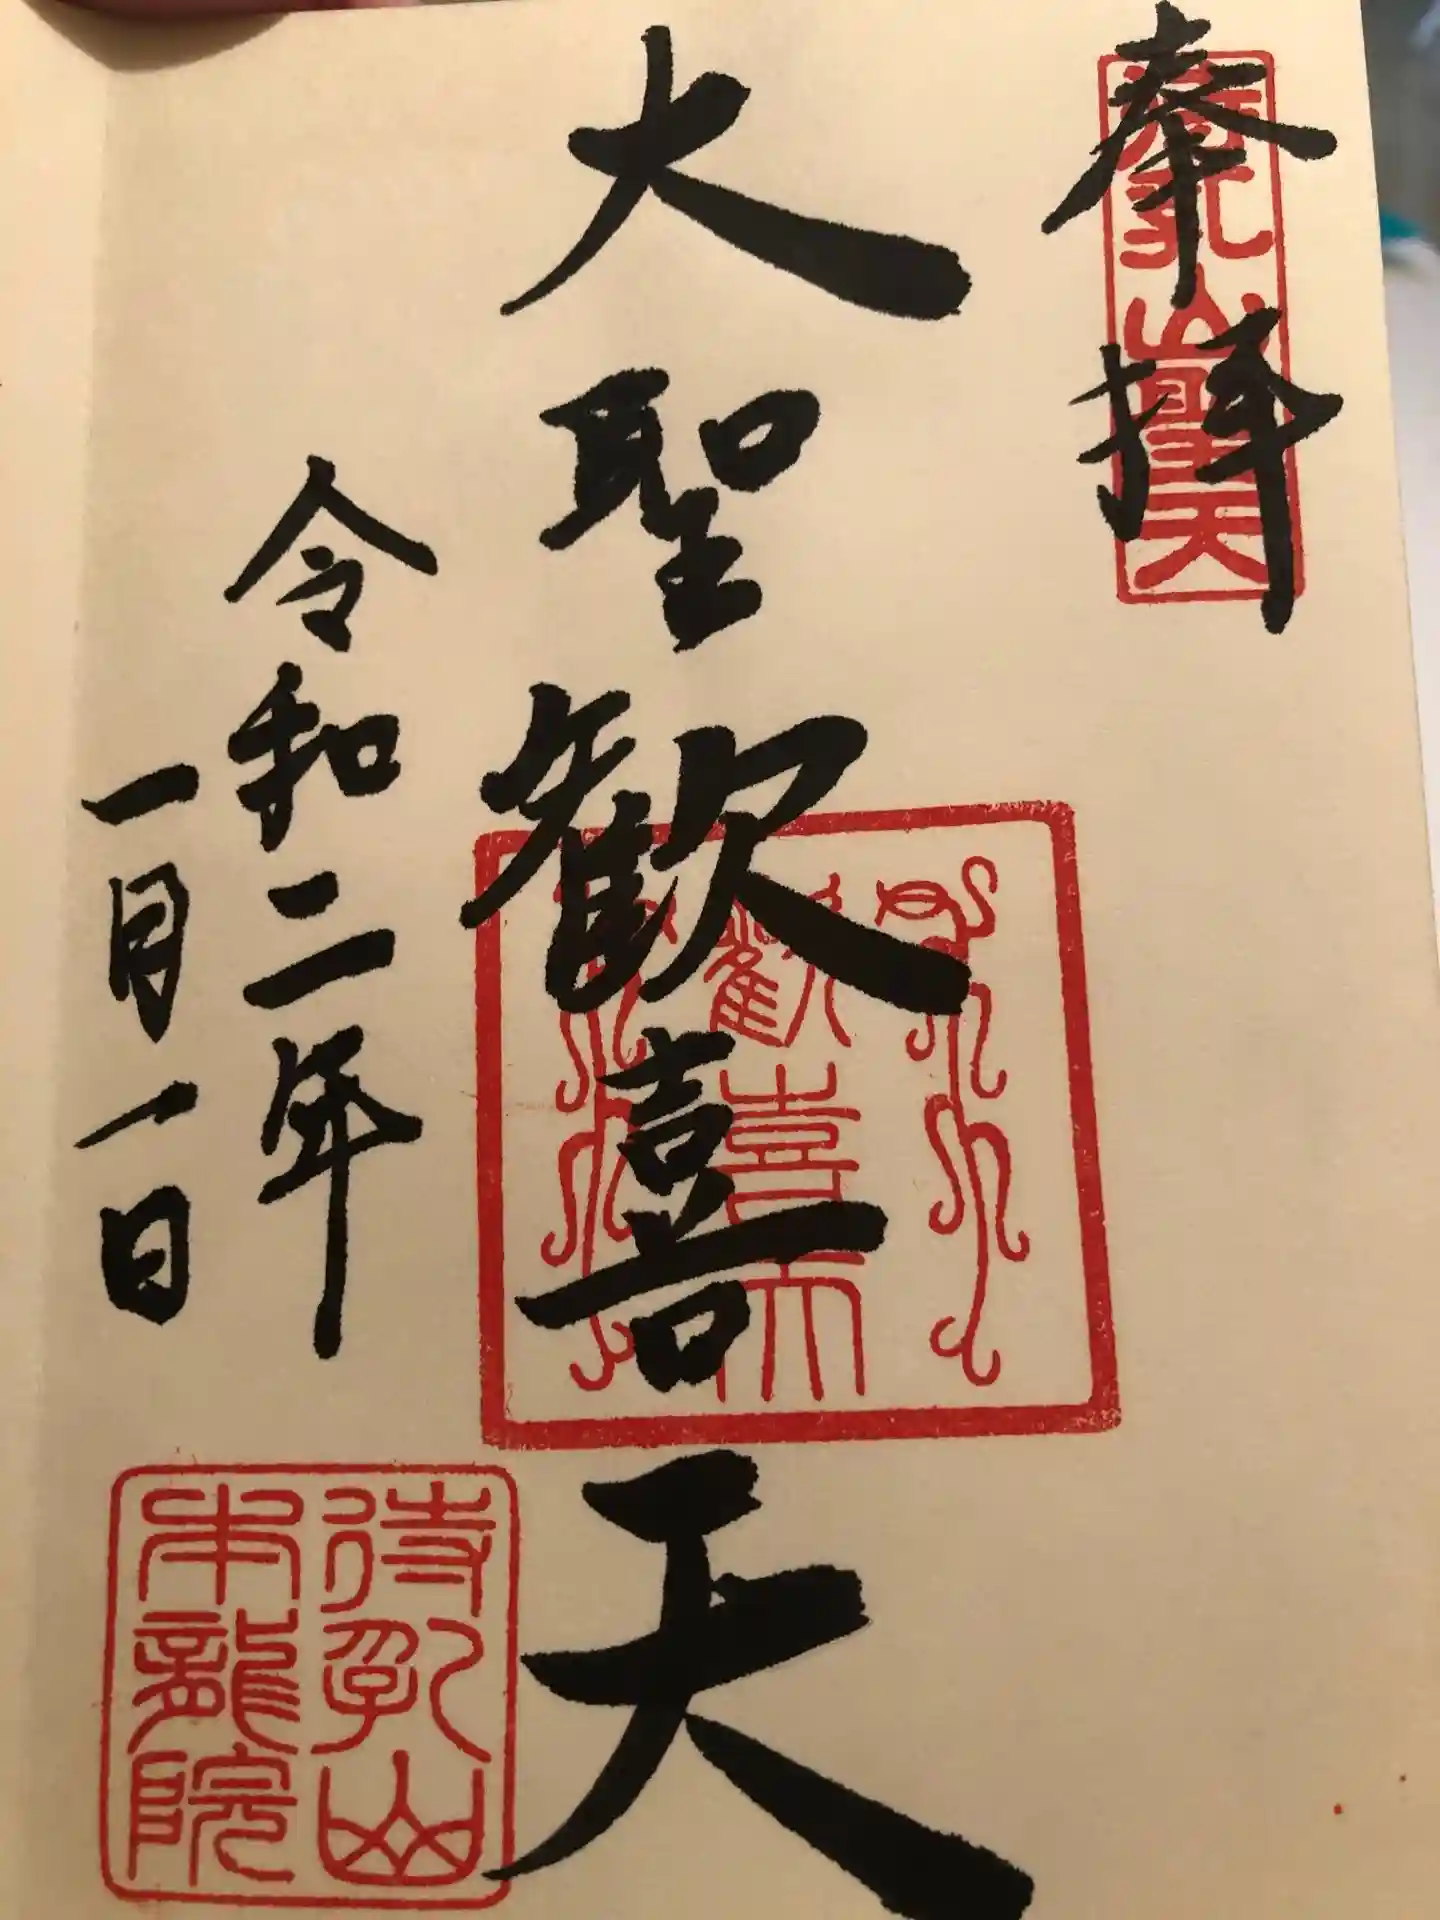 奉拝
待乳山聖天
大聖歓喜天
歓喜天
令和二年
一月一日
待乳山
本龍院